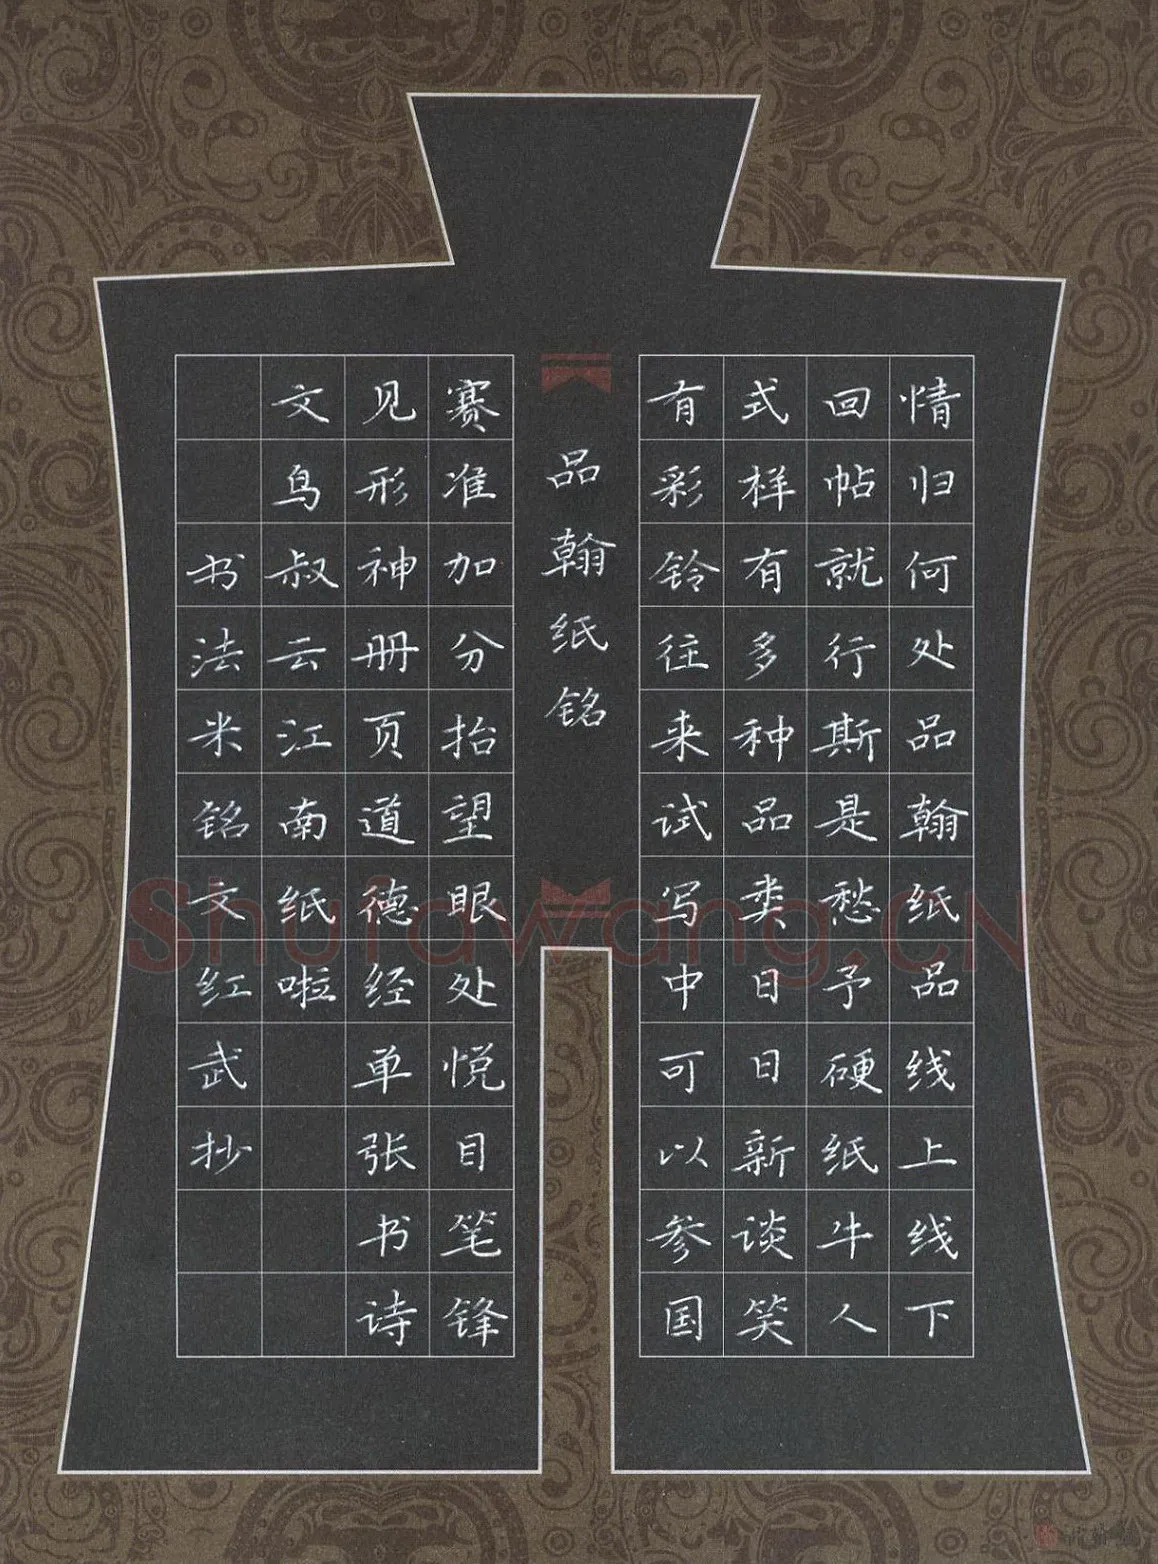 情归何处品翰纸品线上线下
回帖就行斯是愁予硬纸牛人
式样有多种品类日日新谈笑
有彩铃往来试写中可以参国
品翰纸铭
赛准加分抬望眼处悦目笔锋
见形神册页道德经单张书诗
文鸟叔云江南纸啦
书法米铭文红武抄
Shufawang.CN